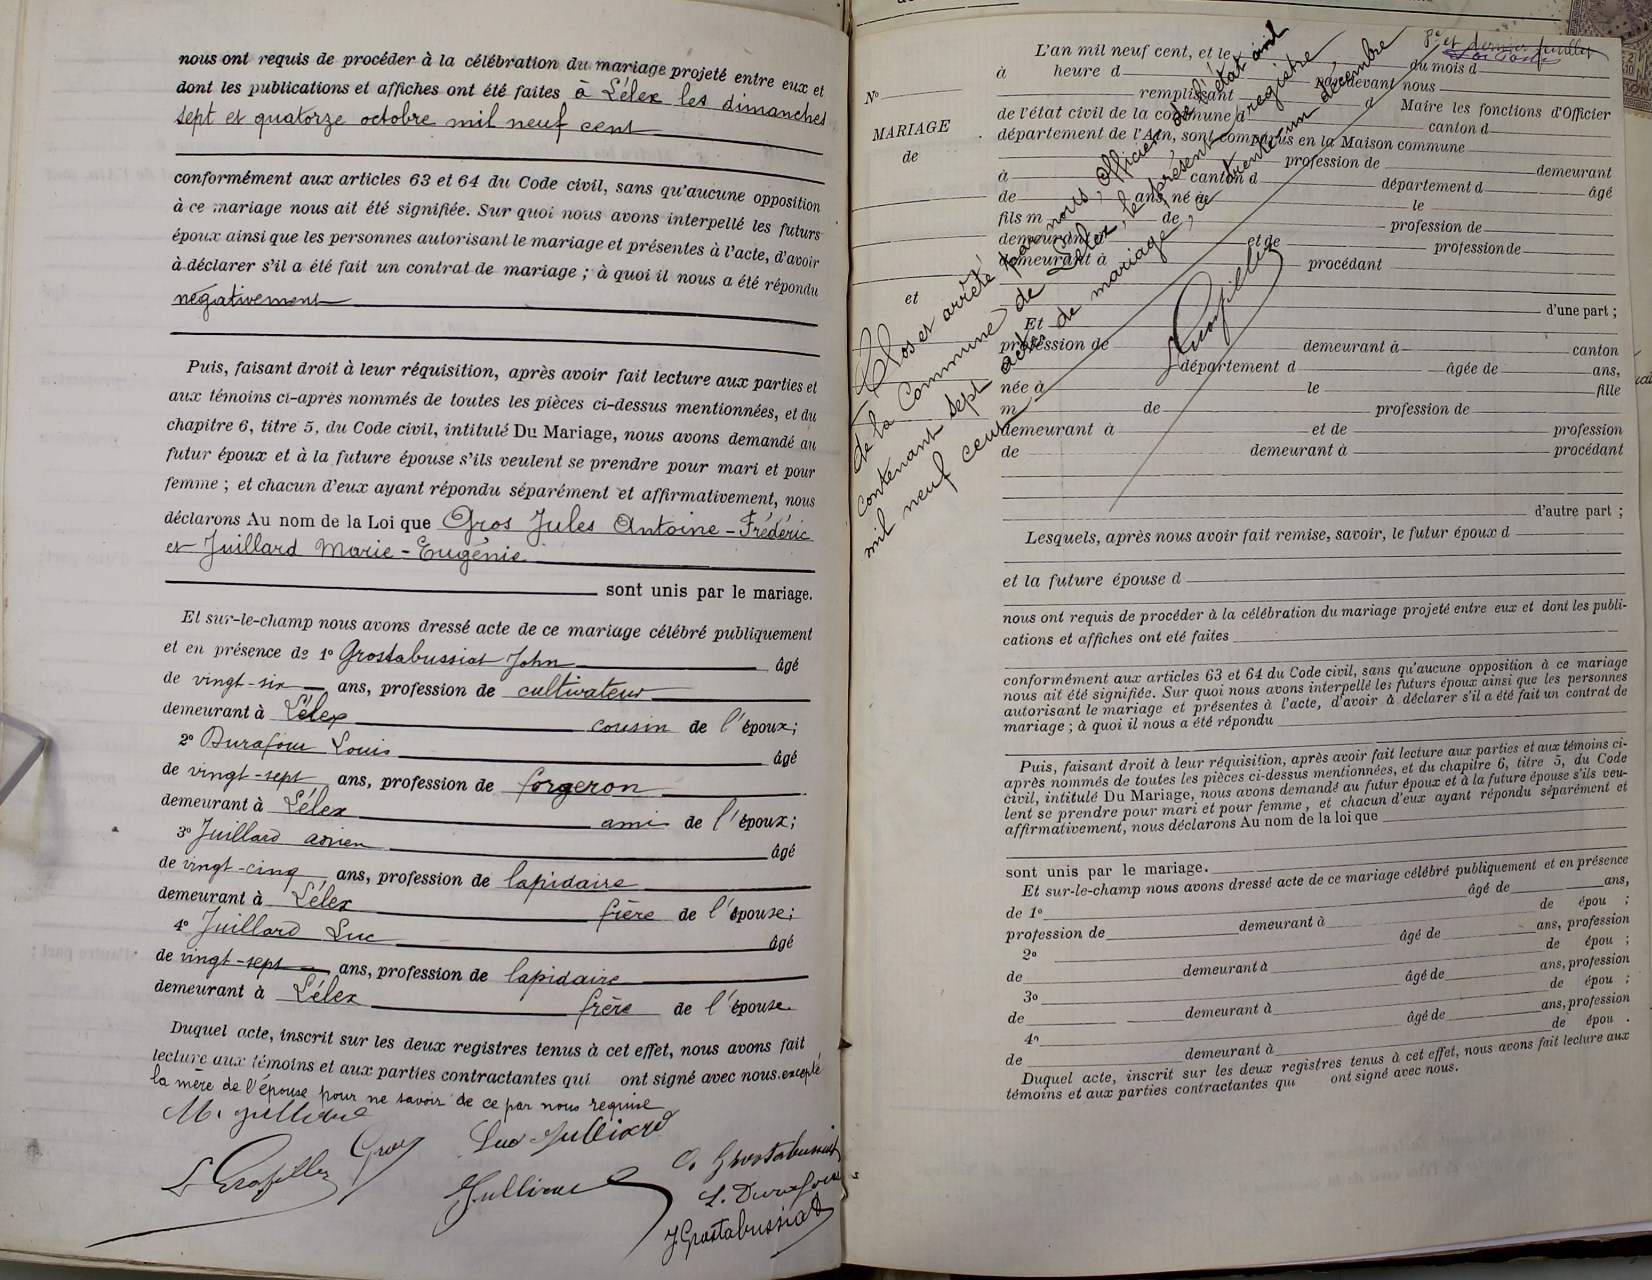 nous ont requis de procéder à la célébration du mariage projeté entre eux et
dont les publications et affiches ont été faites à Lélex les dimanches
sept et quatorze octobre mil neuf cent
conformément aux articles 63 et 64 du Code civil, sans qu'aucune opposition
à ce mariage nous ait été signifiée. Sur quoi nous avons interpellé les futurs
époux ainsi que les personnes autorisant le mariage et présentes à l'acte, d'avoir
à déclarer s'il a été fait un contrat de mariage ; à quoi il nous a été répondu
négativement
Puis, faisant droit à leur réquisition, après avoir fait lecture aux parties et
aux témoins ci-après nommés de toutes les pièces ci-dessus mentionnées, et du
chapitre 6, titre 5, du Code civil, intitulé Du Mariage, nous avons demandé au
futur époux et à la future épouse s'ils veulent se prendre pour mari et pour
femme ; et chacun d'eux ayant répondu séparément et affirmativement, nous
déclarons Au nom de la Loi que Gros Jules Antoine-Frédéric
et Juillard Marie-Eugénie
sont unis par le mariage.
Et sur-le-champ nous avons dressé acte de ce mariage célébré publiquement
et en présence de 1º Grostabussiat John âgé
de vingt-six ans, profession de cultivateur
demeurant à Lélex cousin de l'époux;
2º Durafour Louis âgé
de vingt-sept ans, profession de forgeron
demeurant à Lélex ami de l'époux;
3º Juillard âgé
de vingt-cinq ans, profession de lapidaire
demeurant à Lélex frère de l'épouse;
4º Juillard Luc âgé
de vingt-sept ans, profession de lapidaire
demeurant à Lélex frère de l'épouse.
Duquel acte, inscrit sur les deux registres tenus à cet effet, nous avons fait
lecture aux témoins et aux parties contractantes qui ont signé avec nous. excepté
la mère de l'épouse pour ne savoir de ce par nous requise
Gros Luc Julliard
L. Grospellier
Grostabussiat
L. Durafour
J Grostabussiat
et dernier feuillet
Nº
MARIAGE
de
et
Clos et arrêté par nous, Officier de l'état civil
de la Commune de Lélex, le présent registre
contenant sept actes de mariage, ce trente-un décembre
mil neuf cent
Grospellier
L'an mil neuf cent, et le du mois d
à heure d par devant nous
remplissant d Maire les fonctions d'Officier
de l'état civil de la commune d canton d
département de l'Ain, sont comparus en la Maison commune
profession de demeurant
à canton d département d âgé
de ans, né à le
fils m de profession de
demeurant à et de profession de
demeurant à procédant
d'une part ;
Et
profession de demeurant à canton
département d âgée de ans,
née à le fille
m de profession de
demeurant à et de profession
de demeurant à procédant
d'autre part ;
Lesquels, après nous avoir fait remise, savoir, le futur époux d
et la future épouse d
nous ont requis de procéder à la célébration du mariage projeté entre eux et dont les publi-
cations et affiches ont eté faites
conformément aux articles 63 et 64 du Code civil, sans qu'aucune opposition à ce mariage
nous ait été signifiée. Sur quoi nous avons interpellé les futurs époux ainsi que les personnes
autorisant le mariage et présentes à l'acte, d'avoir à déclarer s'il a été fait un contrat de
mariage ; à quoi il nous a été répondu
Puis, faisant droit à leur réquisition, après avoir fait lecture aux parties et aux témoins ci-
après nommés de toutes les pièces ci-dessus mentionnées, et du chapitre 6, titre 5, du Code
civil, intitulé Du Mariage, nous avons demandé au futur époux et à la future épouse s'ils veu-
lent se prendre pour mari et pour femme , et chacun d'eux ayant répondu séparément et
affirmativement, nous déclarons Au nom de la loi que
sont unis par le mariage.
Et sur-le-champ nous avons dressé acte de ce mariage célébré publiquement et en présence
de 1º âgé de ans,
profession de demeurant à de épou ;
2º âgé de ans, profession
de demeurant à de épou ;
3º âgé de ans, profession
de demeurant à de épou ;
4º âgé de ans, profession
de demeurant à de épou .
Duquel acte, inscrit sur les deux registres tenus à cet effet, nous avons fait lecture aux
témoins et aux parties contractantes qui ont signé avec nous.